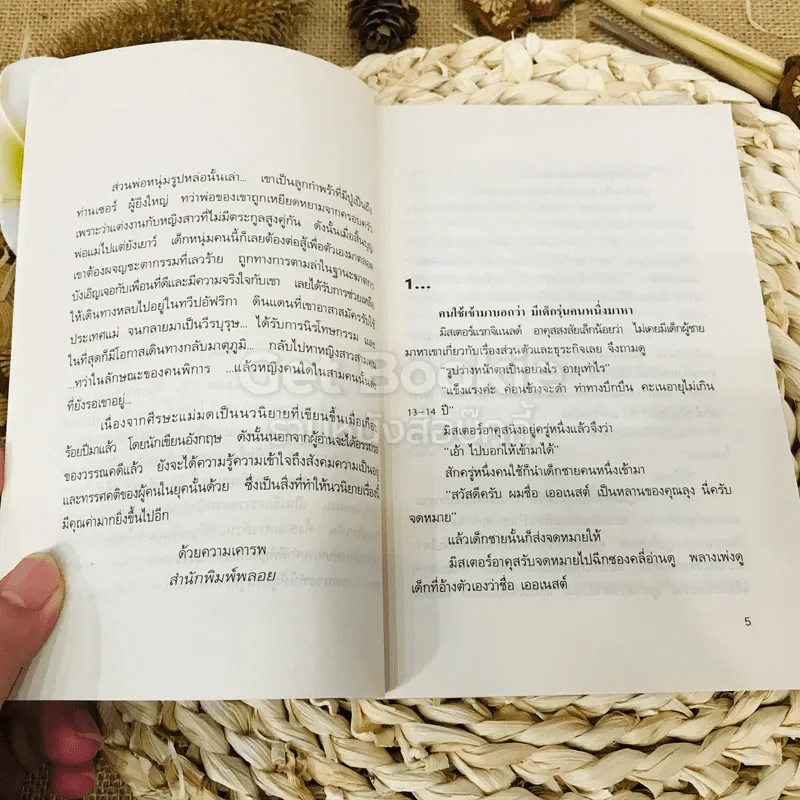 ส่วนพ่อหนุ่มรูปหล่อนั้นเล่า... เขาเป็นลูกกำพร้าที่มีปู่เป็นถึง
ท่านเซอร์ ผู้ยิ่งใหญ่ ทว่าพ่อของเขาถูกเหยียดหยามจากครอบครัว
เพราะว่าแต่งงานกับหญิงสาวที่ไม่มีตระกูลสูงคู่กัน ดังนั้นเมื่อสิ้นบุญ
พ่อแม่ไปแต่ยังเยาว์ เด็กหนุ่มคนนี้ก็เลยต้องต่อสู้เพื่อตัวเองมาตลอด
เขาต้องผจญชะตากรรมที่เลวร้าย ถูกทางการตามล่าในฐานะฆาตกร
บังเอิญเจอกับเพื่อนที่ดีและมีความจริงใจกับเขา เลยได้รับการช่วยเหลือ
ให้เดินทางหลบไปอยู่ในทวีปอัฟริกา ดินแดนที่เขาอาสาสมัครรับใช้
ประเทศแม่ จนกลายมาเป็นวีรบุรุษ... ได้รับการนิรโทษกรรม และ
ในที่สุดก็มีโอกาสเดินทางกลับมาตุภูมิ... กลับไปหาหญิงสาวสามคน
...ทว่าในลักษณะของคนพิการ ...แล้วหญิงคนใดในสามคนนั้นล่ะ
ที่ยังรอเขาอยู่...
เนื่องจากศีรษะแม่มดเป็นนวนิยายที่เขียนขึ้นเมื่อเกือบ
ร้อยปีมาแล้ว โดยนักเขียนอังกฤษ ดังนั้นนอกจากผู้อ่านจะได้อรรถรส
ของวรรณคดีแล้ว ยังจะได้ความรู้ความเข้าใจถึงสังคมความเป็นอยู่
และทรรศคติของผู้คนในยุคนั้นด้วย ซึ่งเป็นสิ่งที่ทำให้นวนิยายเรื่องนี้
มีคุณค่ามากยิ่งขึ้นไปอีก
ด้วยความเคารพ
สำนักพิมพ์พลอย
1...
คนใช้เข้ามาบอกว่า มีเด็กรุ่นคนหนึ่งมาหา
มิสเตอร์เรกจิแนลด์ อาคุสสงสัยเล็กน้อยว่า ไม่เคยมีเด็กผู้ชาย
มาหาเขาเกี่ยวกับเรื่องส่วนตัวและธุระกิจเลย จึงถามดู
"รูปร่างหน้าตาเป็นอย่างไร อายุเท่าไร"
"แข็งแรงค่ะ ค่อนข้างจะดำ ท่าทางบึกบึน คะเนอายุไม่เกิน
13-14 ปี"
มิสเตอร์อาคุสนิ่งอยู่ครู่หนึ่งแล้วจึงว่า
"เอ้า ไปบอกให้เข้ามาได้"
สักครู่หนึ่งคนใช้ก็นำเด็กชายคนหนึ่งเข้ามา
"สวัสดีครับ ผมชื่อ เออเนสต์ เป็นหลานของคุณลุง นี่ครับ
จดหมาย"
แล้วเด็กชายนั้นก็ส่งจดหมายให้
มิสเตอร์อาคุสรับจดหมายไปฉีกซองคลี่อ่านดู พลางเพ่งดู
เด็กที่อ้างตัวเองว่าชื่อ เออเนสต์
5